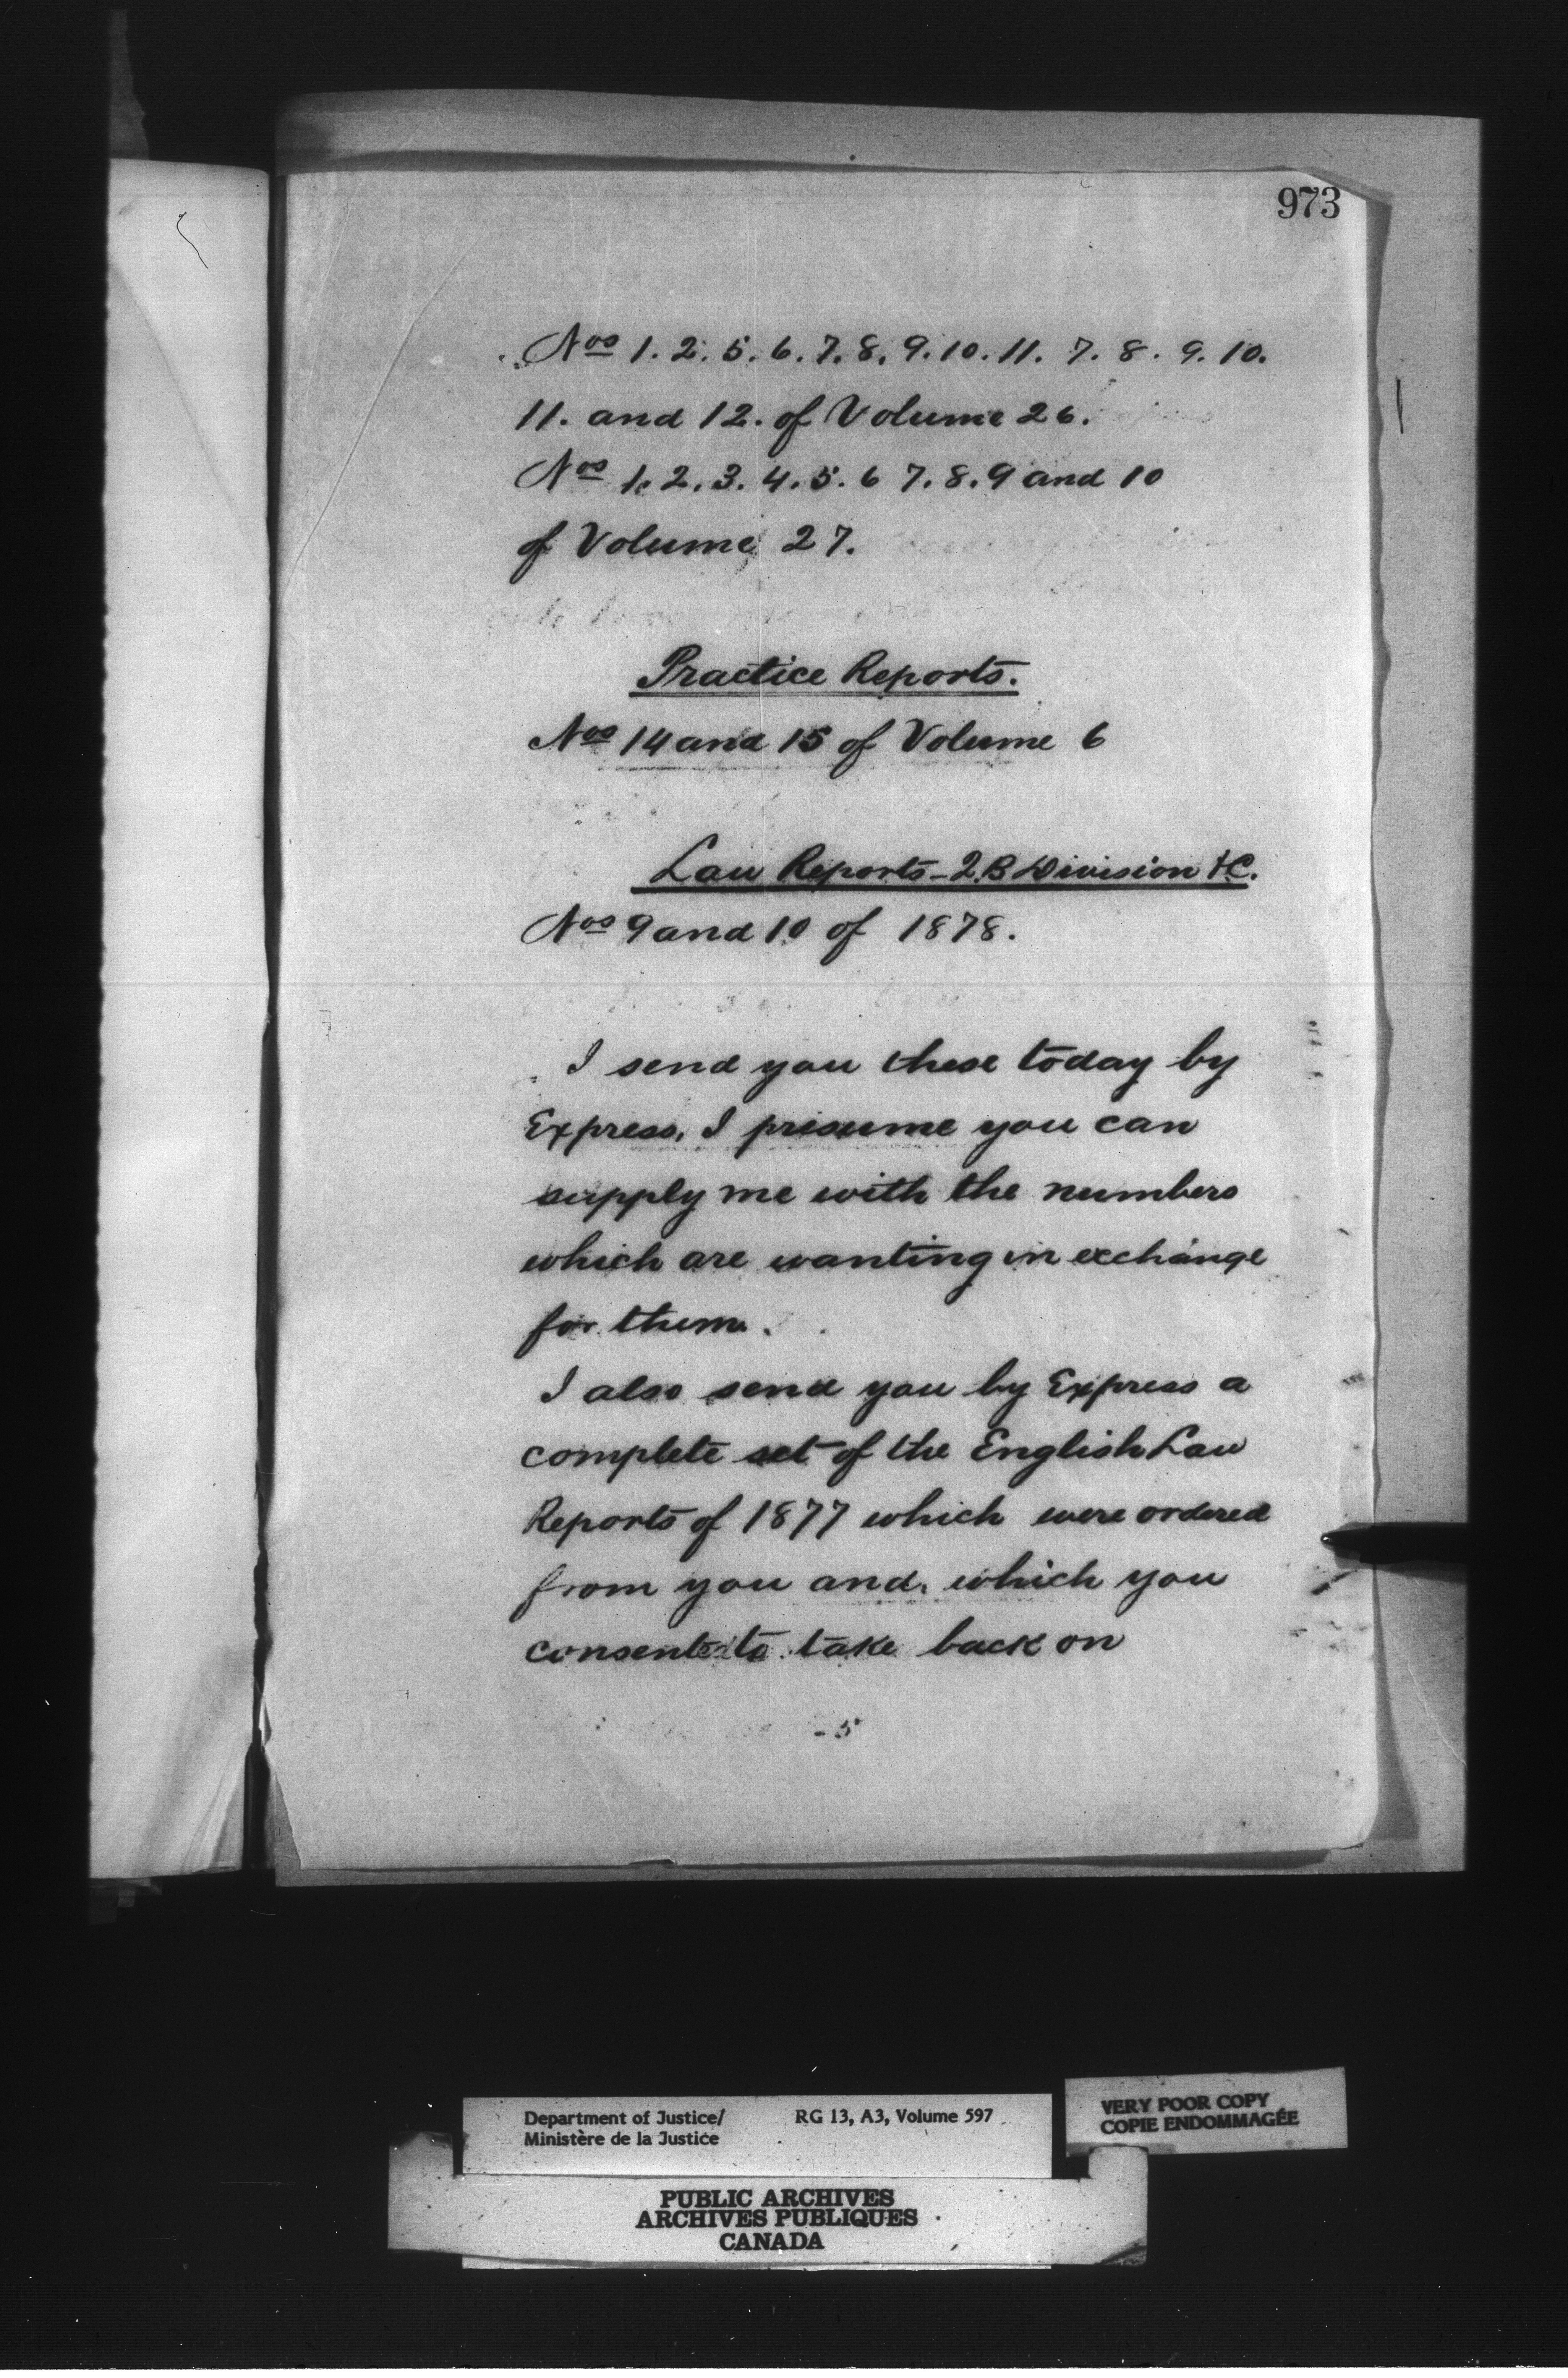 973
Nos 1. 2. 5. 6. 7. 8. 9. 10. 11. 7. 8. 9. 10.
11. and 12. of Volume 26.
Nos 1. 2. 3. 4. 5. 6 7. 8. 9 and 10
of Volume 27.
Practice Reports.
Nos 14 and 15 of Volume 6
Law Reports - Q B Division &C.
Nos 9 and 10 of 1878.
I send you these today by
Express, I presume you can
supply me with the numbers
which are wanting in exchange
for them.
I also send you by Express a
complete set of the English Law
Reports of 1877 which were ordered
from you and which you
consent to take back on
Department of Justice/ RG 13, A3, Volume 597
Ministère de la Justice
VERY POOR COPY
COPIE ENDOMMAGÉE
PUBLIC ARCHIVES
ARCHIVES PUBLIQUES
CANADA